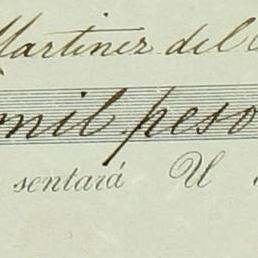 Martinez del
mil peso
sentará U